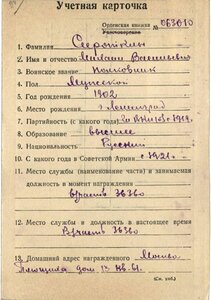 Учетная карточка
Орденская книжка № 063610
Удостоверение
1. Фамилия
2. Имя и отчество Михаил Васильевич
3. Воинское звание Полковник
4. Пол Мужской
5. Год рождения 1902
6. Место рождения г. Ленинград
7. Партийность (с какого года) 1919 г.
8. Образование высшее
9. Национальность Русский
10. С какого года в Советской Армии с 1921 г.
11. Место службы (наименование части) и занимаемая
должность в момент награждения
в/часть 36360
12. Место службы и должность в настоящее время
В/часть 36360
13. Домашний адрес награжденного Москва
дом 13 кв. 61.
(См. на об.)